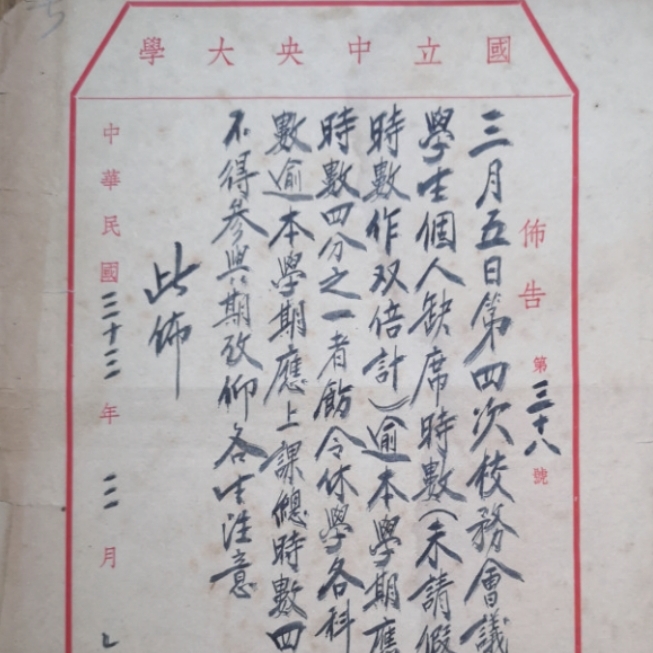 國立中央大學
佈告 第三十八號
三月五日第四次校務會議
學生個人缺席時數（未請假
時數作双倍計）逾本學期應
時數四分之一者飭令休學各科
數逾本學期應上課總時數四
不得參與期攷仰各生注意
此佈
中華民國三十三年三月